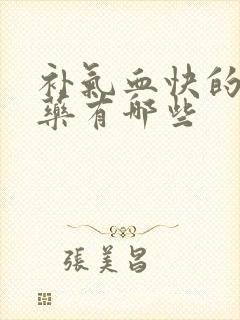 补氣血快的
藥有哪些
張美昌